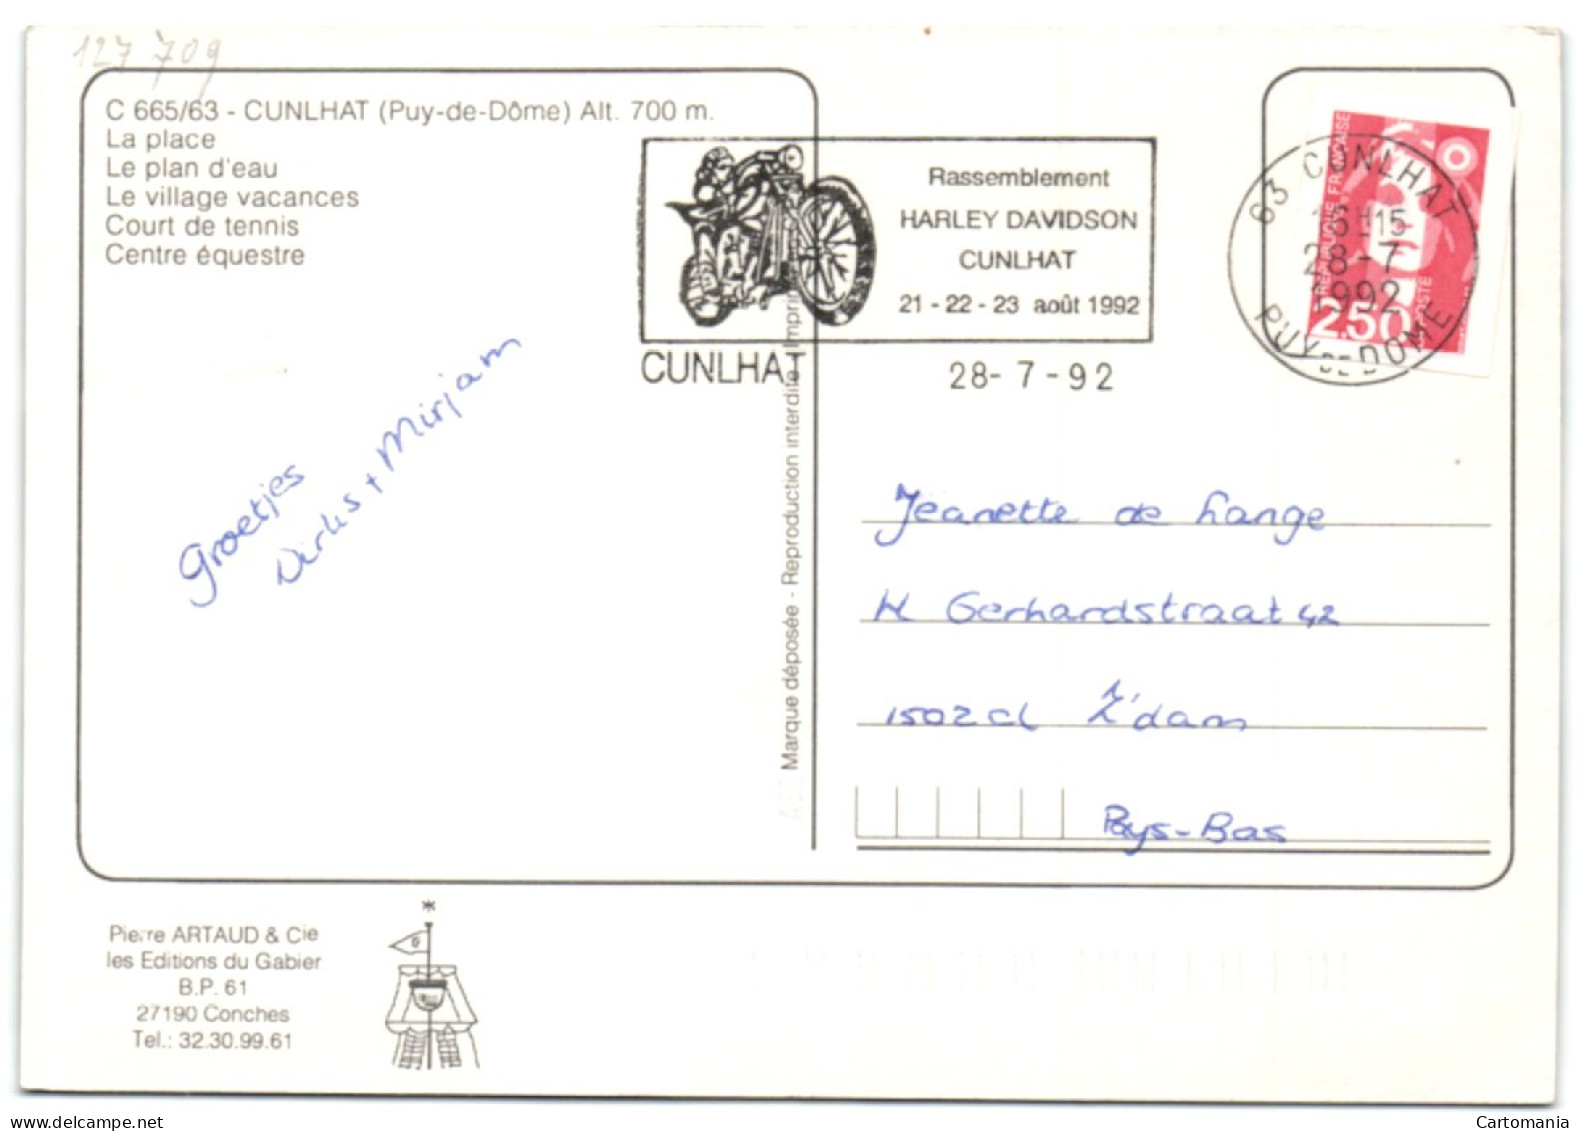 127 709
C 665/63 - CUNLHAT (Puy-de-Dôme) Alt. 700 m.
La place
Le plan d'eau
Le village vacances
Court de tennis
Centre équestre
Rassemblement
HARLEY DAVIDSON
CUNLHAT
21 - 22 - 23 août 1992
CUNLHAT
28 - 7 - 92
63 CUNLHAT
16H15
28-7
1992
PUY DE DOME
REPUBLIQUE FRANÇAISE
2,50
POSTE
Groetjes
Dirks + Mirjam
Marque déposée - Reproduction interdite
Jeanette de Lange
W Gerhardstraat 42
1502 cl Z'dam
Pays-Bas
Pierre ARTAUD & Cie
les Editions du Gabier
B.P. 61
27190 Conches
Tel.: 32.30.99.61
Cartomania